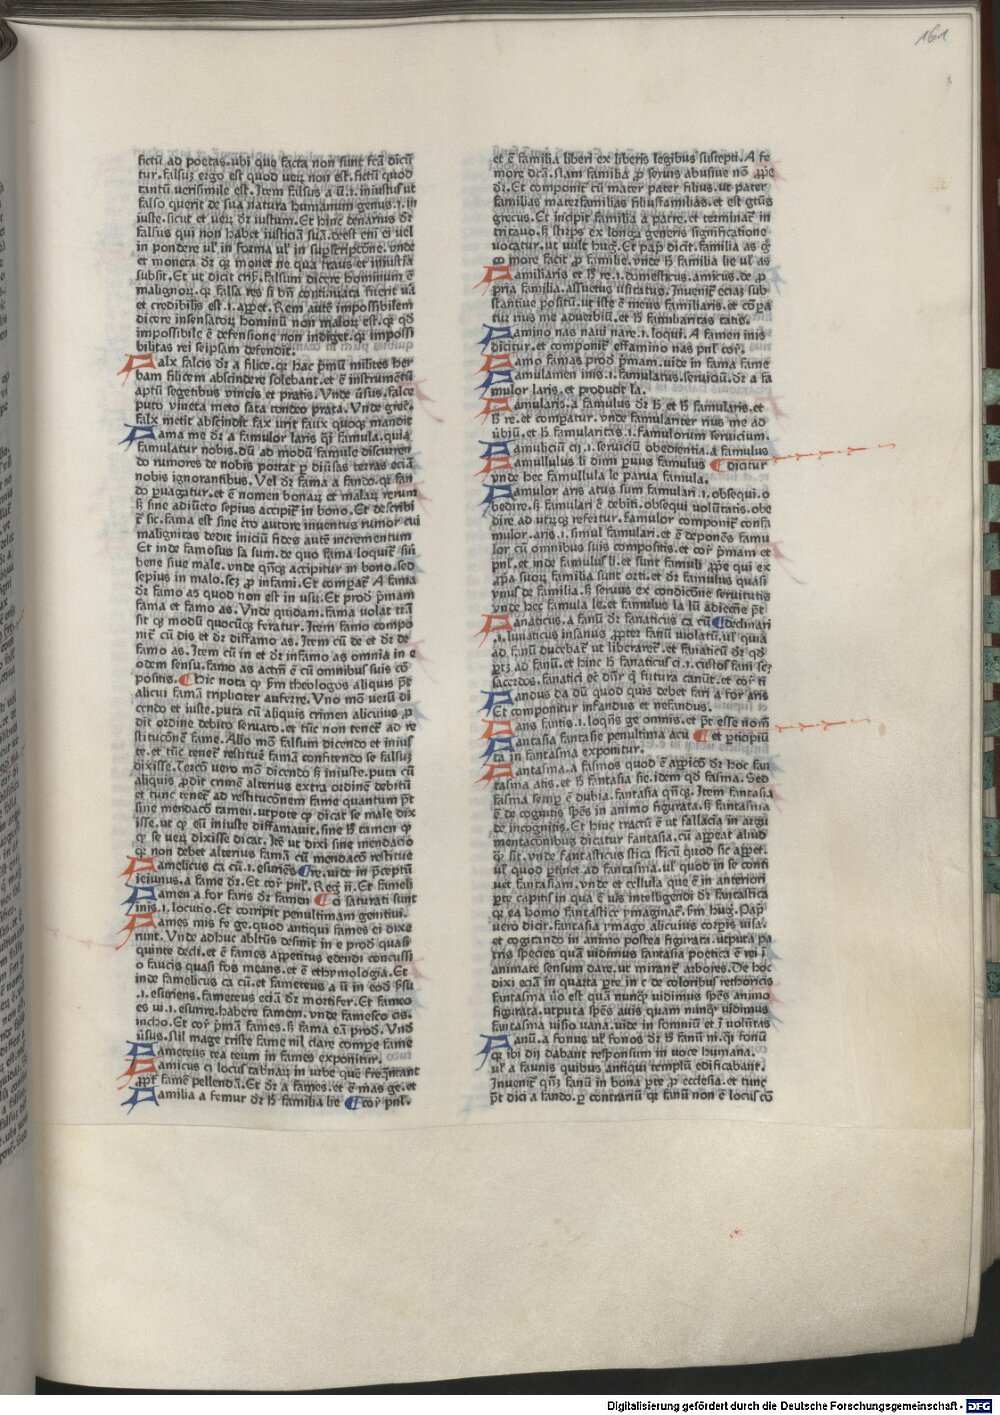 161
fictū ad poetas. ubi que facta non sunt fcā dicū
tur. falsuꝫ ergo est quod ueꝝ non est. fictū quod
tantū uerisimile est. Item falsus a ū .i. iniustus ut
falso querit de sua natura humanum genus .i. in
iuste. sicut et ueꝝ dꝛ iustum. Et hinc denarius dꝛ
falsus qui non habet iusticiā suā. deest eni ei uel
in pondere ul' in forma ul' in supscripcōne. vnde
et moneta dꝛ qꝛ monet ne qua fraus et iniustia
subsit. Et ut dicit crisꝰ. falsum dicere hominum ē
malignoꝝ. qꝛ falsa res si bn̄ continuata fuerit uā
et credibilis est .i. appet. Rem autē impossibilem
dicere insensatoꝝ hominū non maloꝝ est. qꝛ qd
impossibile ē defensione non indiget. qꝛ impossi
bilitas rei seipsam defendit.
Falx falcis dꝛ a filice. qꝛ hac pͥmū milites her
bam filicem abscindere solebant. et ē instrumētū
aptū segetibus vineis et pratis. Vnde ūsus. falce
puto vineta meto sata tondeo prata. Vnde grec.
falx metit abscindit fax urit faux quoqꝫ mandit
Fama me dꝛ a famulor laris qͥ famula. quia
famulatur nobis. dū ad modū famule discurren
do rumores de nobis portat p diūsas terras eciā
nobis ignorantibus. Vel dꝛ fama a fando. qꝛ fan
do puagatur. et ē nomen bonaꝝ et malaꝝ rerum
sꝫ sine adiūcto sepius accipit in bono. Et describi
t sic. fama est sine cto autore inuentus rumor cui
malignitas dedit iniciū fides autē incrementum
Et inde famosus sa sum. de quo fama loquit siū
bene siue male. vnde qn̄qꝫ accipitur in bono. sed
sepius in malo. scꝫ p infami. Et compat. A fama
dꝛ famo as quod non est in usu. Et prod pͥmam
fama et famo as. Vnde quidam. fama uolat trā
sit qꝫ modū quocūqꝫ feratur. Item famo compo
nit cū dis et dꝛ diffamo as. Item cū de et dꝛ de
famo as. Item cū in et dꝛ infamo as omnia in e
odem sensu. famo as actm̄ ē cū omnibus suis cō
positis. Hic nota qꝫ fm theologos aliquis pt
alicui famā tripliciter auferre. Vno mō uerū di
cendo et iuste. puta cū aliquis crimen alicuius p
dit ordine debito seruato. et tūc non tenet ad re
stitucōnē fame. Alio mō falsum dicendo et inius
te. et tūc tenet restituē famā confitendo se falsuꝫ
dixisse. Tercō vero mō dicendo sꝫ iniuste. puta cū
aliquis pdit crimē alterius extra ordinē debitū
et tunc tenet ad restitucōnem fame quantum pt
sine mendacō tamen. utpote qꝫ dicat se male dix
isse. ut qꝫ eū iniuste diffamauit. sine hͦ tamen qꝫ
qꝫ se ueꝝ dixisse dicat. Itē ut dixi sine mendacio
qꝛ non debet alterius famā cū mendacō restitue
Famelicus ca cū .i. esuries re. uide in pceptū
ieiunus. a fame dꝛ. Et cor pnl'. Reg ij. Et fameli
Famen a for faris dꝛ famen ci saturati sunt
inis .i. locutio. Et corripit penultimam genitiui.
Fames mis fe ge. quod antiqui fames ei dixe
runt. Vnde adhuc abltūs desinit in e prod quasi
quinte decli. et ē fames appetitus edendi concussi
o faucis quasi fos means. et ē ethymologia. Et
inde famelicus ca cū. et fametcus a ū in eod psu
.i. esuriens. fametcus eciā dꝛ mortifer. Et fameo
es ui .i. esurire. habere famem. vnde famesco cis.
incho. Et cor pͥmā fames. sꝫ fama eā prod. Vnd
ūsus. Nil mage triste fame nil clare compe fame
Fametcus tca tcum in fames exponitur.
Famicus ci locus tabnaꝝ in urbe quē freqntant
ppt famē pellendā. Et dꝛ a fames. et ē mas ge. et
Familia a femur dꝛ hͨ familia lie cor pnl'.
et ē familia liberi ex liberis legibus suscepti. A fe
more dcā. Nam familia p seruis abusiue nō ppe
dꝛ. Et componit cū mater pater filius. ut pater
familias materfamilias filiusfamilias. et est gtūs
grecus. Et incipit familia a patre. et terminat in
tritauo. sꝫ stirps ex longa generis significatione
vocatur. ut uult hug. Et pap dicit. familia as qͣ
ꝯ more facit p familie. vnde hͨ familia lie ul' as
Familiaris et hͦ re .i. domesticus. amicus. de p
pria familia. assuetus usitatus. Inuenit eciaꝫ sub
stantiue positū. ut iste ē meus familiaris. et cōpa
tur rius me aduerbiū. et hͨ familiaritas tatis.
Famino nas naui nare .i. loqui. A famen inis
dicitur. et componit effamino nas pnl' cor.
Famo famas prod pͥmam. uide in fama fame
Famulamen inis .i. famulatus. seruiciū. dꝛ a fa
mulor laris. et producit la.
Famularis. a famulus dꝛ hͨ et hͨ famularis. et
hͦ re. et compatur. vnde famulanter rius me ad
ūbiū. et hͨ famularitas .i. famulorum seruicium.
Famuliciū cij .i. seruiciū obedientia. a famulus
Famullulus li dimi puus famulus dicitur
vnde hec famullula le parua famula.
Famulor aris atus sum famulari .i. obsequi. o
bedire. sꝫ famulari ē debiti. obsequi volutatis. obe
dire ad utrūqꝫ refertur. famulor componit confa
mulor. aris .i. simul famulari. et ē deponēs famu
lor cū omnibus suis compositis. et cor pͥmam et
pnl'. et inde famulus li. et sunt famuli ppe qui ex
ppa suoꝝ familia sunt orti. et dꝛ famulus quasi
vnus de familia. sꝫ seruus ex condicōne seruitutis
vnde hec famula le. et famulus la lū adiectiue pt
Fanaticus. a fanū dꝛ fanaticus ca cū declinari
.i. lunaticus insanus. ppter fanū violatū. ul' quia
ad fanū ducebat ut liberaret. et fanaticū dꝛ qd
ptꝫ ad fanū. et hinc hͨ fanaticus ci .i. custos fani seꝫ
sacerdos. fanatici et dn̄r qͥ futura canūt. et cor ti
Fandus da dū quod quis debet fari a for aris
Et componitur infandus et nefandus.
Fans fantis .i. loqn̄s ge omnis. et pt esse nom̄
Fantasia fantasie penultima acu et pticipiū
ta in fantasma exponitur.
Fantasma. a fasmos quod ē appicō dꝛ hoc fan
tasma atis. et hͨ fantasia sie. idem qd fasma. Sed
fasma semp ē dubia. fantasia qn̄qꝫ. Item fantasia
ē de cognitis spēs in animo figurata. sꝫ fantasma
de incognitis. Et hinc tractū ē ut fallacia in argu
mentacōnibus dicatur fantasia. cū appeat aliud
qꝫ sit. vnde fantasticus stica sticū quod sic appet.
ul' quod ptinet ad fantasma. ul' quod in se conti
uet fantasiam. vnde et cellula que ē in anteriori
pte capitis in qua ē uis intelligendi dꝛ fantastica
qꝛ ea homo fantastice ymaginat. fm hug. Pap
vero dicit. fantasia ymago alicuius corpis uisa.
et cogitando in animo postea figurata. utputa pa
tris species quā uidimus fantasia poetica ē rei i
animate sensum dare. ut mirant arbores. De hoc
dixi eciā in quarta pte in c de coloribus rethoricis
fantasma ūo est quā nunqꝫ vidimus spēs animo
figurata. utputa spēs auis quam nunqꝫ vidimus
fantasma uisio uana. uide in somniū et i volūtas
Fanū. a fonus ul' fonos dꝛ hͨ fanū ni. qꝛ fonū
qꝛ ibi dij dabant responsum in uoce humana.
ul' a faunis quibus antiqui templū edificabant.
Inuenit qn̄qꝫ fanū in bona pte p ecclesia. et tunc
pt dici a fando. p contrariū qꝛ fanū non ē locus cō
Digitalisierung gefördert durch die Deutsche Forschungsgemeinschaft - DFG